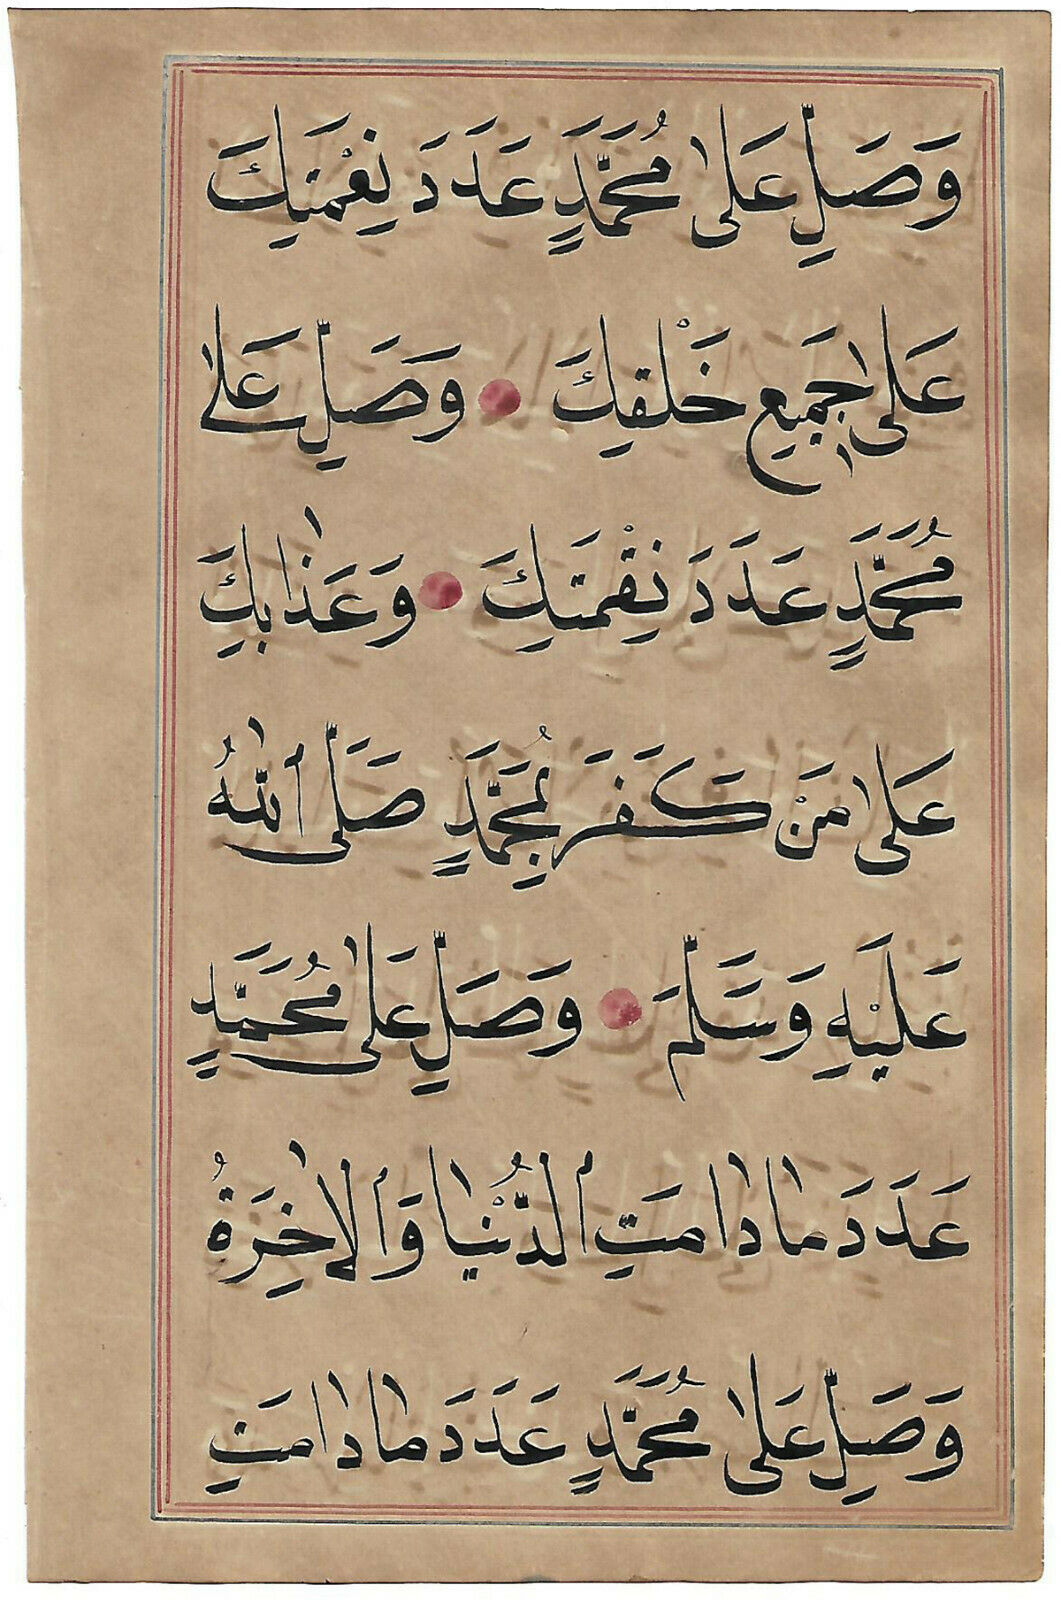 وَصَلِّ عَلىٰ مُحَمَّدٍ عَدَدَ نِعْمَتِكَ
عَلىٰ جَمِيعِ خَلْقِكَ وَصَلِّ عَلىٰ
مُحَمَّدٍ عَدَدَ نِقْمَتِكَ وَعَذَابِكَ
عَلىٰ مَنْ كَفَرَ بِمُحَمَّدٍ صَلَّى ٱللّٰهُ
عَلَيْهِ وَسَلَّمَ وَصَلِّ عَلىٰ مُحَمَّدٍ
عَدَدَ مَا دَامَتِ ٱلدُّنْيَا وَٱلْاٰخِرَةُ
وَصَلِّ عَلىٰ مُحَمَّدٍ عَدَدَ مَا دَامَتِ